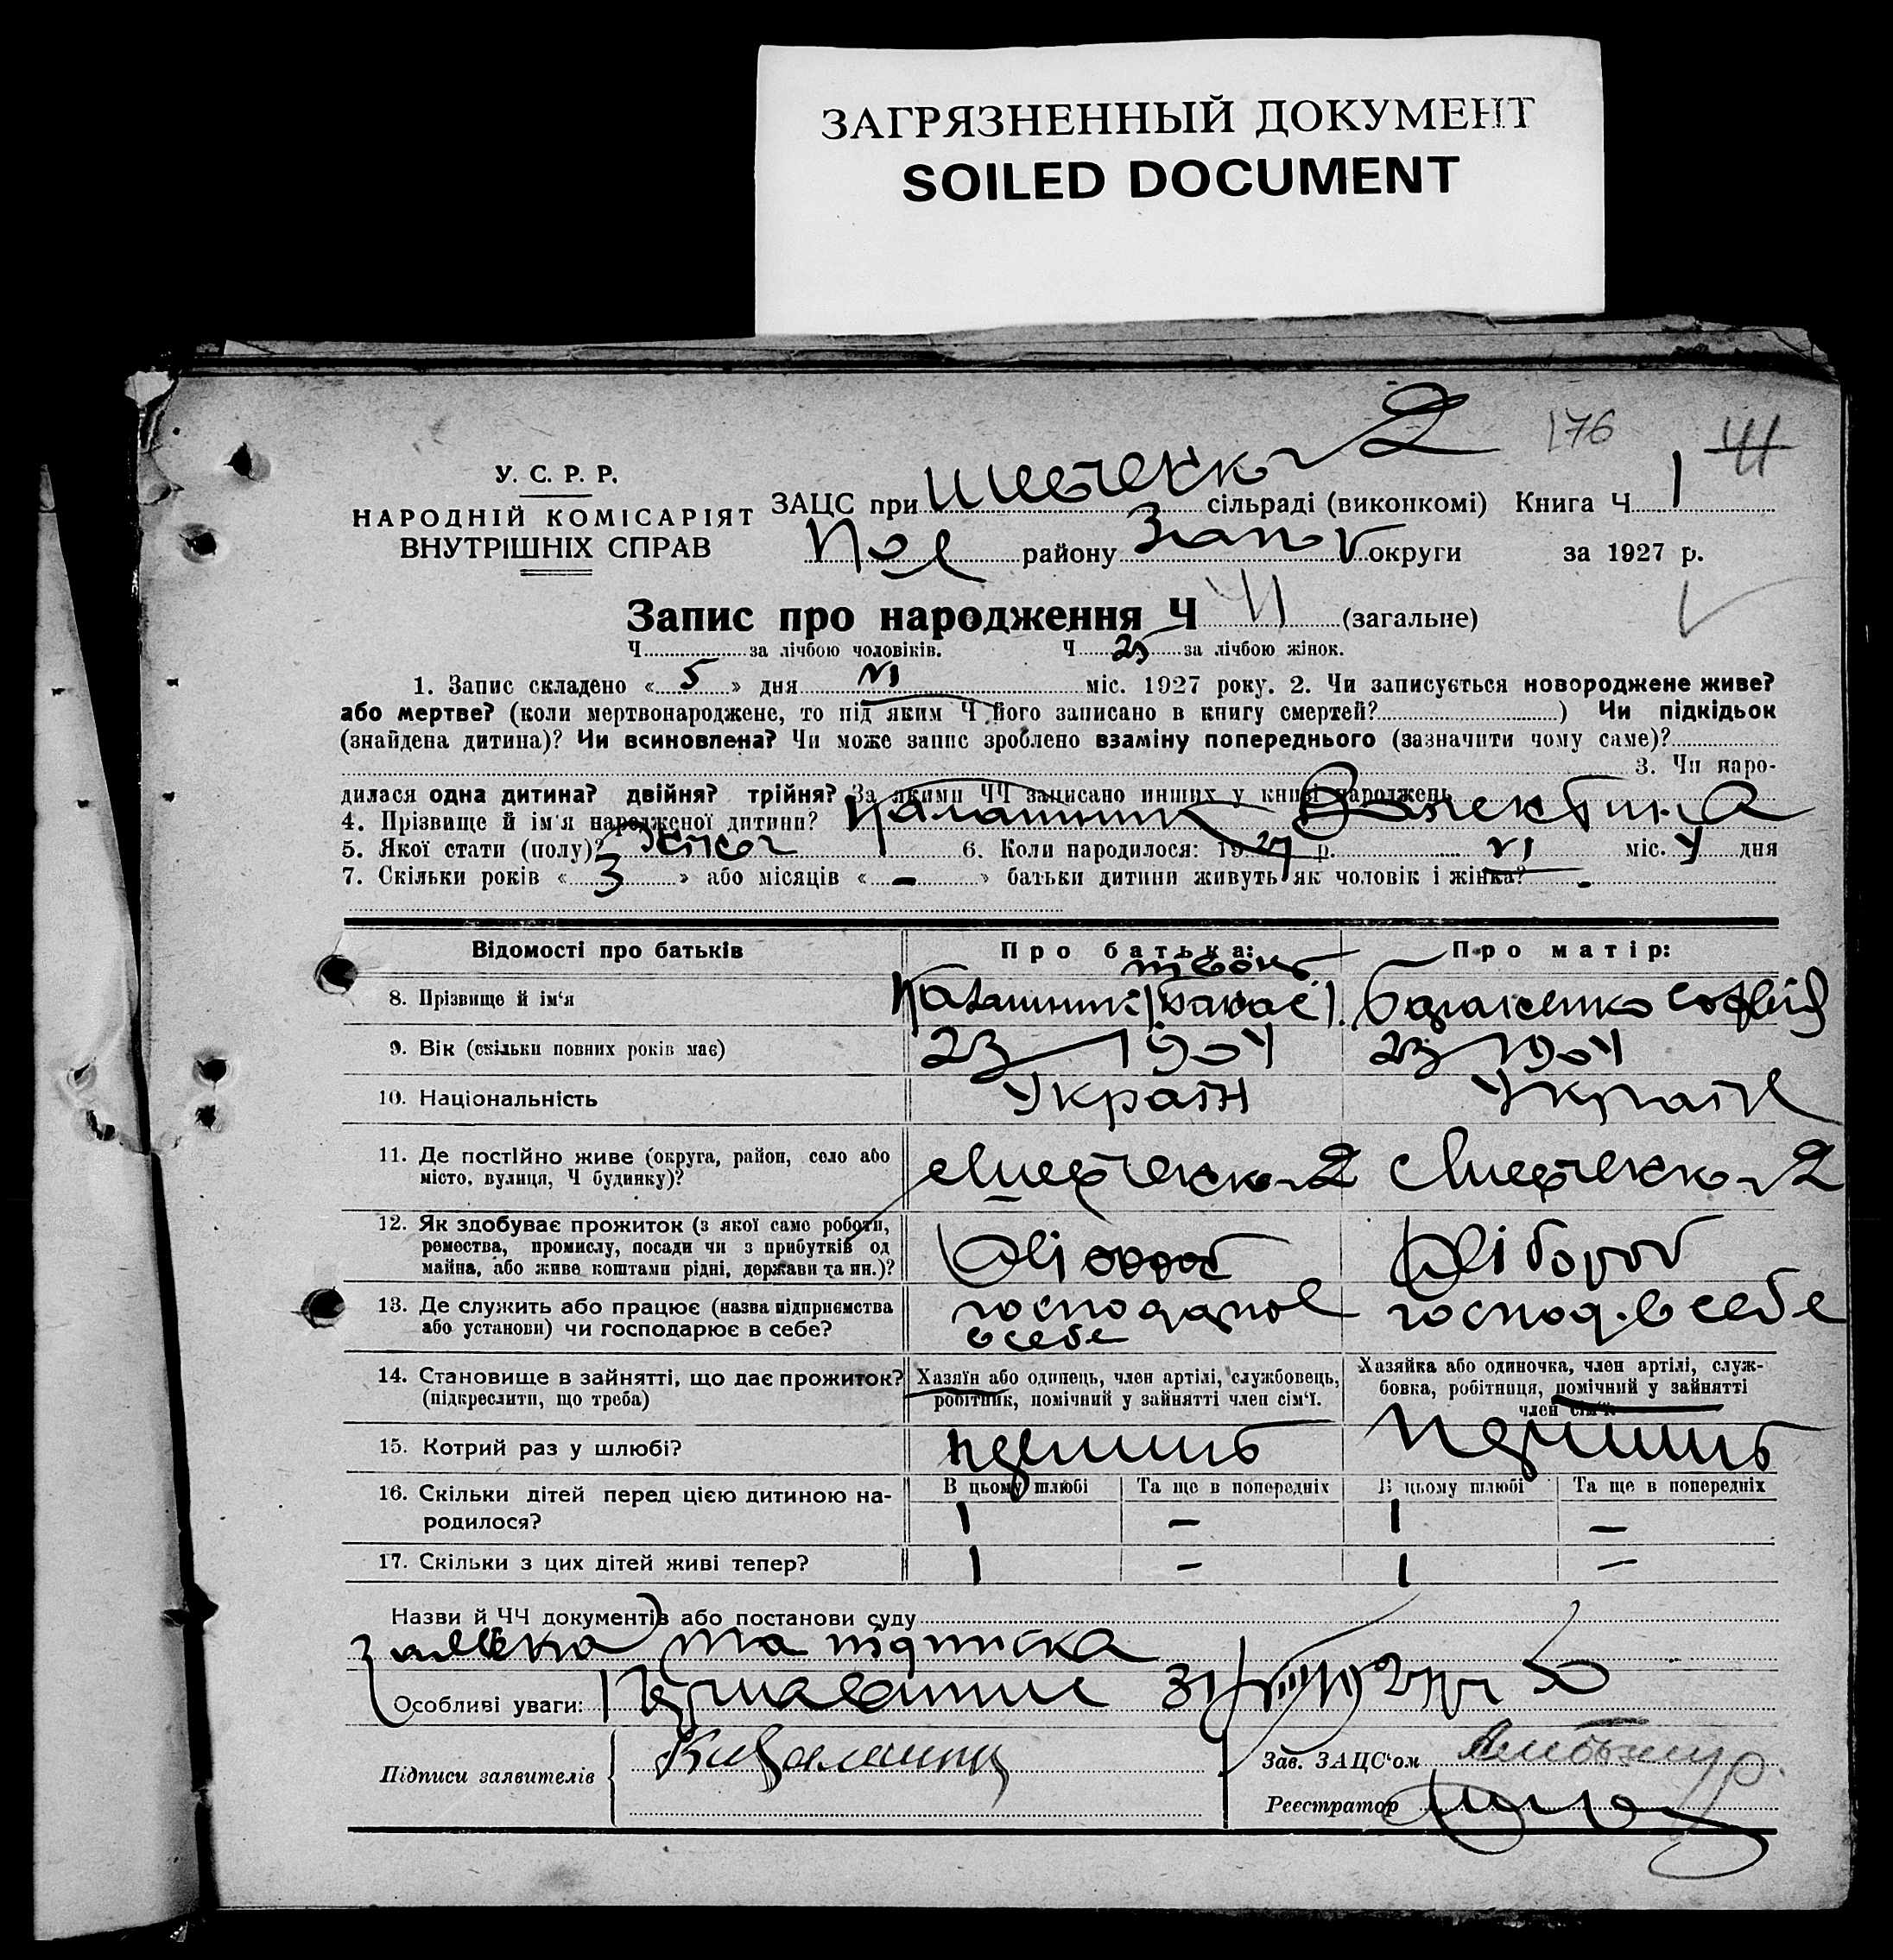 ЗАГРЯЗНЕННЫЙ ДОКУМЕНТ
SOILED DOCUMENT
176 41
У. С. Р. Р.
НАРОДНІЙ КОМІСАРІЯТ
ВНУТРІШНІХ СПРАВ
ЗАЦС при 2 сільраді (виконкомі) Книга Ч 1
району Запор округи за 1927 р.
Запис про народження Ч 41 (загальне)
Ч за лічбою чоловіків. Ч 23 за лічбою жінок.
1. Запис складено « 5 » дня VI міс. 1927 року. 2. Чи записується новороджене живе?
або мертве? (коли мертвонароджене, то під яким Ч його записано в книгу смертей? ) Чи підкідьок
(знайдена дитина)? Чи всиновлена? Чи може запис зроблено взаміну попереднього (зазначити чому саме)?
3. Чи наро-
дилася одна дитина? двійня? трійня? За якими ЧЧ записано инших у книзі народжень
4. Прізвище й ім'я народженої дитини? Калашник Валентина
5. Якої стати (полу)? жіноч 6. Коли народилося: 1927 р. VI міс. 4 дня
7. Скільки років « 3 » або місяців « - » батьки дитини живуть як чоловік і жінка? -
Відомості про батьків Про батька: Про матір:
8. Прізвище й ім'я Калашник Панас Софія
9. Вік (скільки повних років має) 23 1904 23 1904
10. Національність Україн Україн
11. Де постійно живе (округа, район, село або
місто, вулиця, Ч будинку)? 2 2
12. Як здобуває прожиток (з якої саме роботи,
ремества, промислу, посади чи з прибутків од
майна, або живе коштами рідні, держави та ин.)? Хлібороб Хлібороб
13. Де служить або працює (назва підприємства
або установи) чи господарює в себе? господарює
в себе господ. в себе
14. Становище в зайнятті, що дає прожиток?
(підкреслити, що треба)
Хазяїн або одинець, член артілі, службовець,
робітник, помічний у зайнятті член сім'ї.
Хазяйка або одиночка, член артілі, служ-
бовка, робітниця, помічний у зайнятті
член сім'ї.
15. Котрий раз у шлюбі? перший перший
16. Скільки дітей перед цією дитиною на-
родилося?
В цьому шлюбі Та ще в попередніх В цьому шлюбі Та ще в попередніх
1 - 1 -
17. Скільки з цих дітей живі тепер? 1 - 1 -
Назви й ЧЧ документів або постанови суду
заявка та підписка
Особливі уваги:
Підписи заявителів
Зав. ЗАЦС'ом
Реєстратор